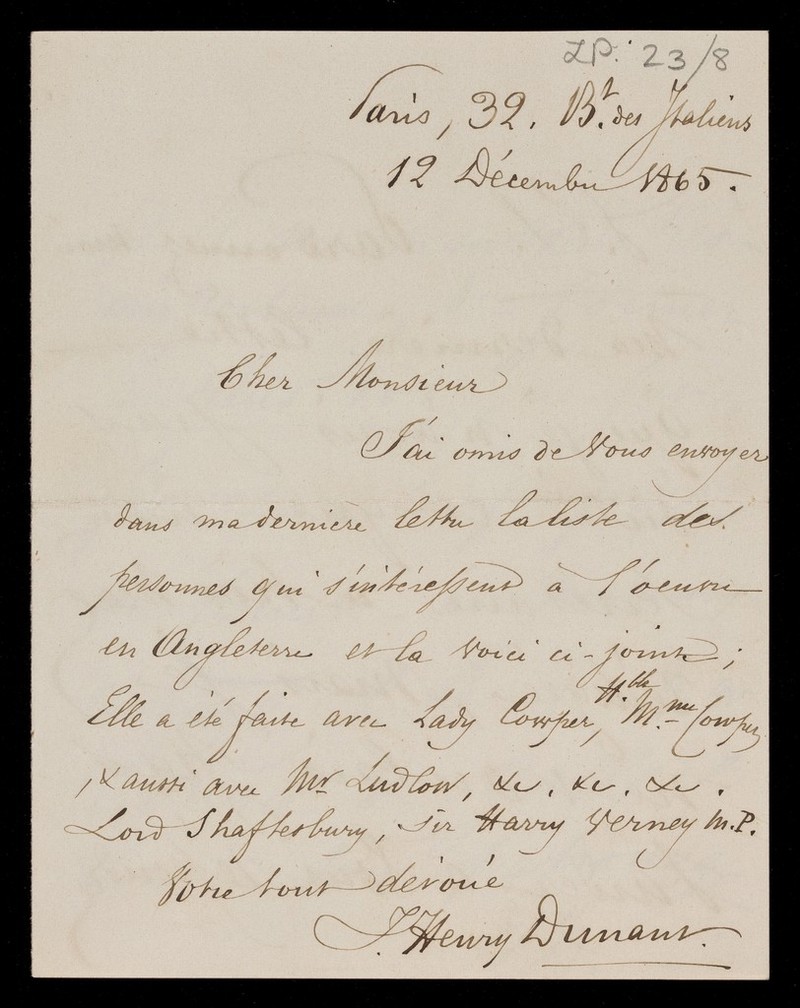 LP. 23/8
Paris, 32. Bt. des Italiens
12 Décembre 1865.
Cher Monsieur
J'ai omis de vous envoyer
dans ma dernière lettre la liste des
personnes qui s'intéressent à l'oeuvre
en Angleterre et la voici ci-jointe;
Elle a été faite avec Lady Cowper, Hble Mme Cowper
, & aussi avec Mr Ludlow, &c, &c, &c.
Lord Shaftesbury, Sir Harry Verney M.P.
Votre tout dévoué
J. Henry Dunant.